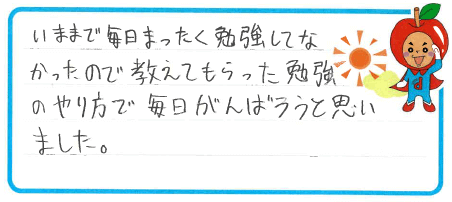 いままで毎日まったく勉強してな
かったので教えてもらった勉強
のやり方で毎日がんばろうと思い
ました。